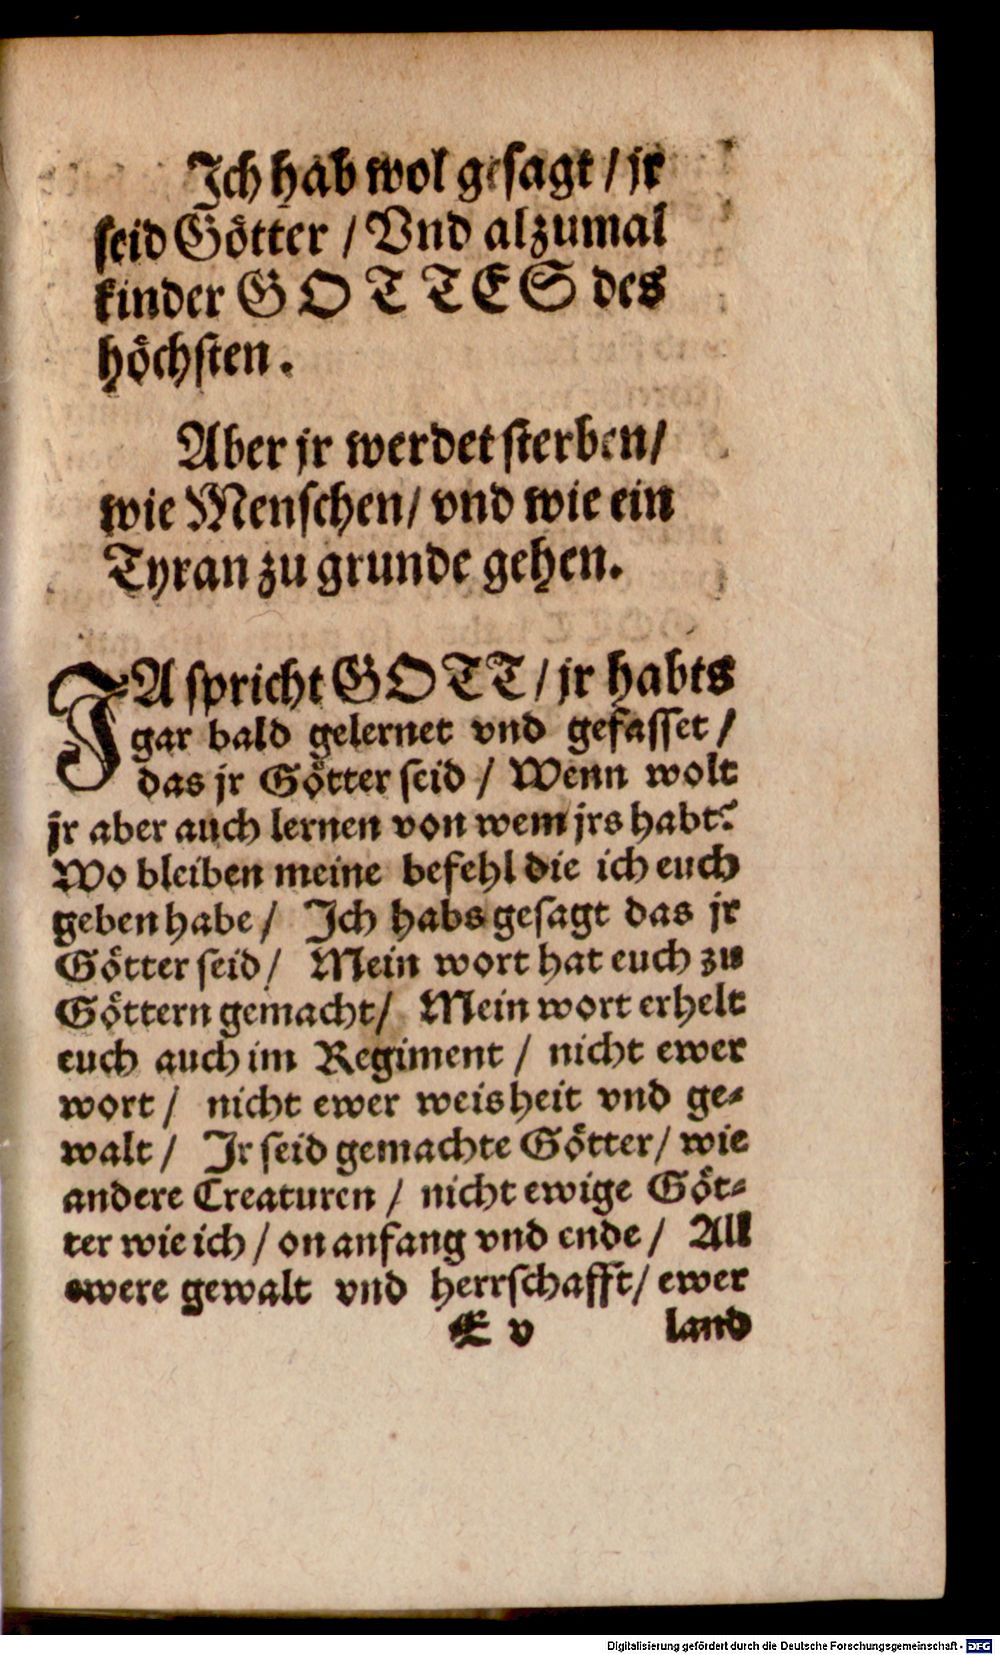 Ich hab wol gesagt / jr
seid Götter / Vnd alzumal
kinder GOTTES des
höchsten.
Aber jr werdet sterben /
wie Menschen / vnd wie ein
Tyran zu grunde gehen.
JA spricht GOTT / jr habts
gar bald gelernet vnd gefasset /
das jr Götter seid / Wenn wolt
jr aber auch lernen von wem jrs habt?
Wo bleiben meine befehl die ich euch
geben habe / Ich habs gesagt das jr
Götter seid / Mein wort hat euch zu
Göttern gemacht / Mein wort erhelt
euch auch im Regiment / nicht ewer
wort / nicht ewer weisheit vnd ge⸗
walt / Ir seid gemachte Götter / wie
andere Creaturen / nicht ewige Göt⸗
ter wie ich / on anfang vnd ende / All
ewere gewalt vnd herrschafft / ewer
E v land
Digitalisierung gefördert durch die Deutsche Forschungsgemeinschaft - DFG